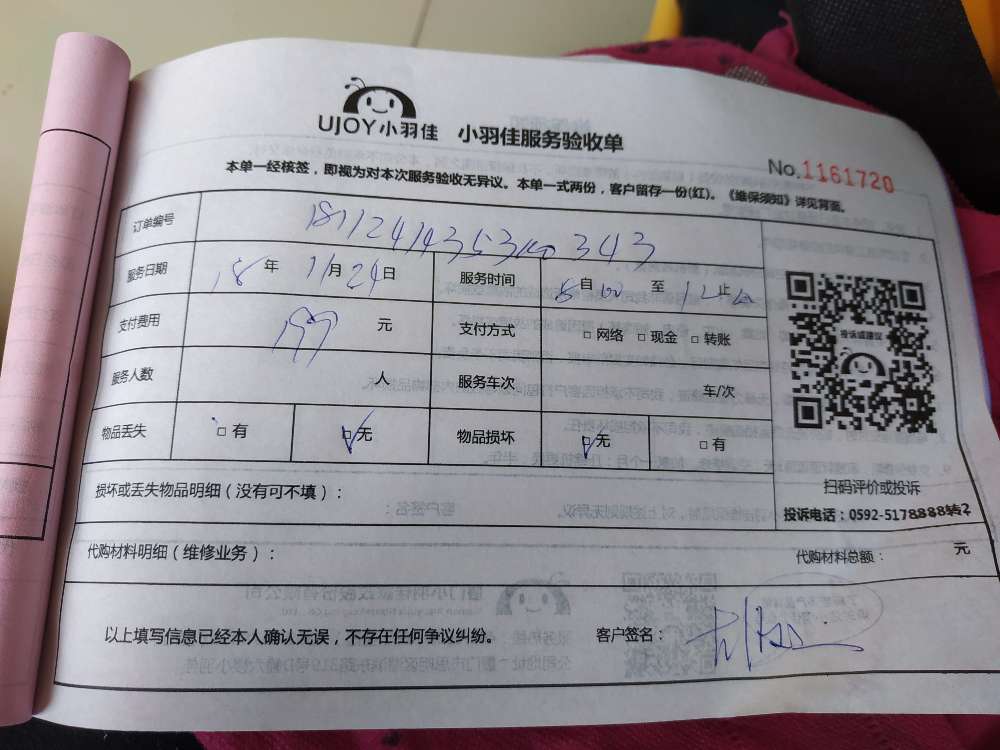 UJOY小羽佳 小羽佳服务验收单
No.1161720
本单一经核签，即视为对本次服务验收无异议。本单一式两份，客户留存一份(红)。《维保须知》详见背面。
订单编号
服务日期 18年 11月24日 服务时间 自 至 12 止
支付费用 199 元 支付方式 □网络 □现金 □转账
服务人数 人 服务车次 车/次
物品丢失 □有 □无 物品损坏 □无 □有
投诉或建议
扫码评价或投诉
投诉电话：0592-5178888转2
损坏或丢失物品明细（没有可不填）：
代购材料明细（维修业务）： 代购材料总额： 元
以上填写信息已经本人确认无误，不存在任何争议纠纷。 客户签名：